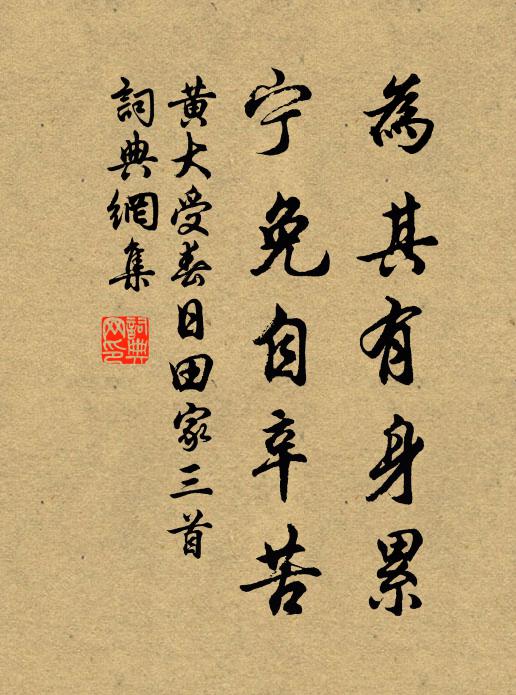 為其有身累
宁免自辛苦
黄大受春日田家三首
詞典網集
詞典網印